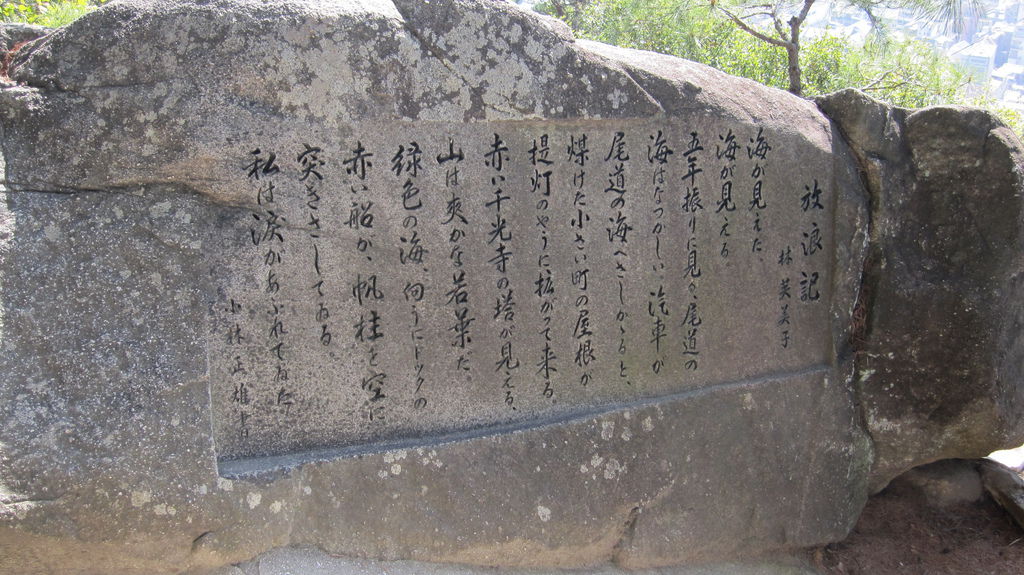 放浪記
林芙美子
海が見えた、
海が見える。
五年振りに見る、尾道の
海はなつかしい、汽車が
尾道の海へさしかゝると、
煤けた小さい町の屋根が
提灯のやうに拡がって来る
赤い千光寺の塔が見える、
山は爽かな若葉だ。
緑色の海、向うにドックの
赤い船が、帆柱を空に
突きさしてゐる。
私は涙があふれてゐた
小林正雄書